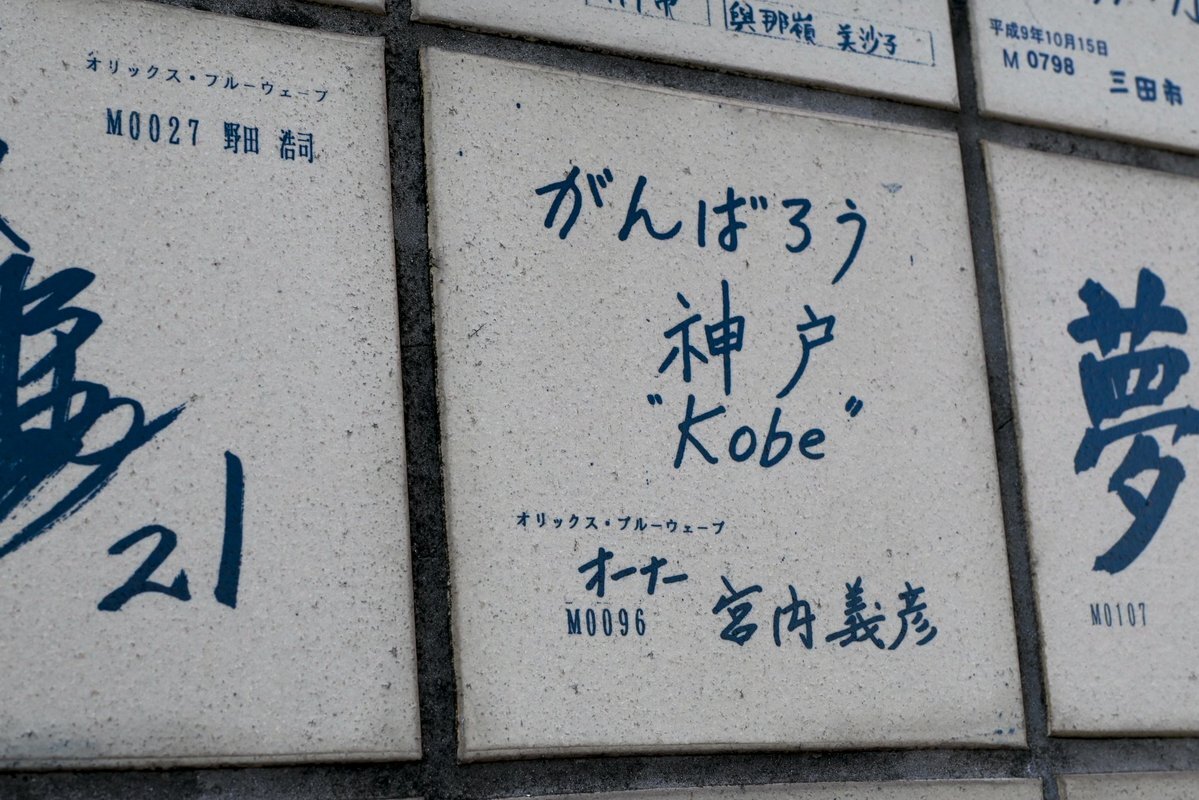 オリックス・ブルーウェーブ
M0027 野田 浩司
21
與那嶺 美沙子
平成9年10月15日
M 0798 三田市
がんばろう
神戸
"Kobe"
オリックス・ブルーウェーブ
オーナー
M0096 宮内義彦
夢
M0107